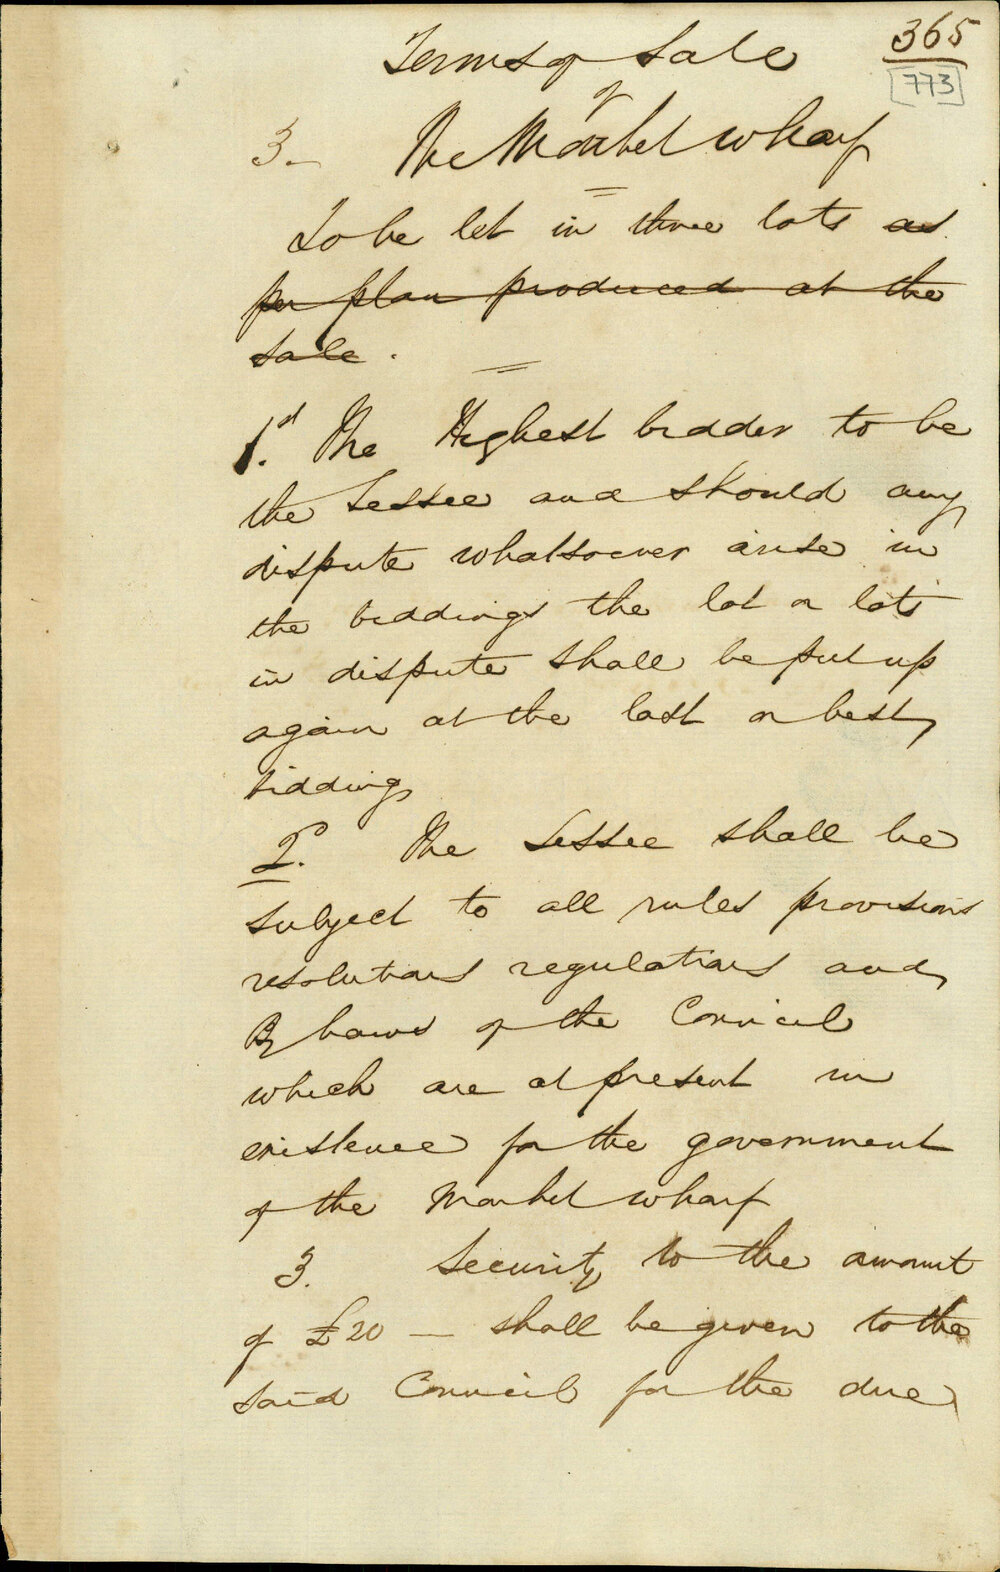 365
773
Terms of Sale
of
3- The Market wharf
To be let in three lots as
per plan produced at the
sale.
1st The Highest bidder to be
the Lessee and should any
dispute whatsoever arise in
the biddings the lot or lots
in dispute shall be put up
again at the last or best
bidding
2. The Lessee shall be
subject to all rules provisions
resolutions regulations and
By Laws of the Council
which are at present in
existence for the government
of the Market wharf
3. Security to the amount
of £20 — shall be given to the
said Council for the due